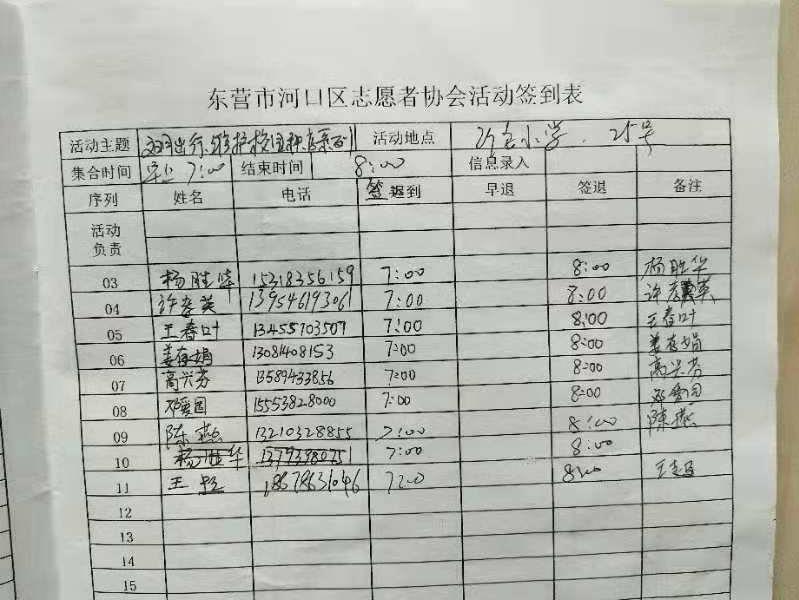 东营市河口区志愿者协会活动签到表
活动主题 文明出行、维护校园秩序 活动地点 河安小学 25号
集合时间 早上 7:00 结束时间 8:00 信息录入
序列 姓名 电话 签到 迟到 早退 签退 备注
活动
负责
03 杨胜华 15318356159 7:00 8:00 杨胜华
04 许孝英 139546193061 7:00 8:00 许孝英
05 王春叶 13455103507 7:00 8:00 王春叶
06 姜存娟 13081408153 7:00 8:00 姜存娟
07 高兴芳 13589433856 7:00 8:00 高兴芳
08 邓爱国 15553828000 7:00 8:00 邓爱国
09 陈燕 13210328855 7:00 8:00 陈燕
10 7:00 8:00
11 王超 18678631046 7:00 8:00 王超
12
13
14
15